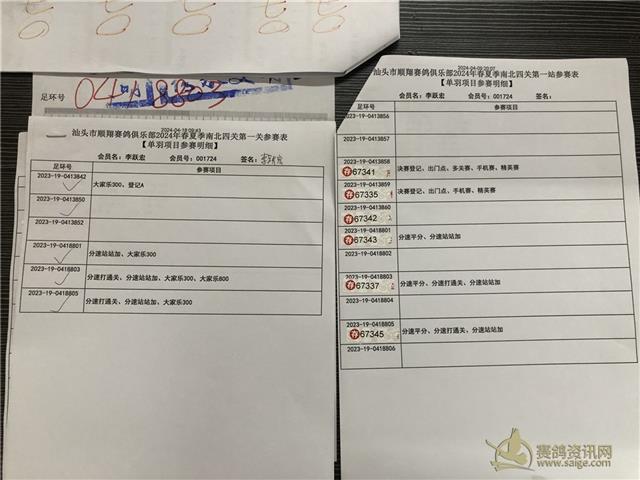 足环号
0418803
2024-04-18 09:43
汕头市顺翔赛鸽俱乐部2024年春夏季南北四关第一关参赛表
【单羽项目参赛明细】
会员名：李跃宏 会员号：001724 签名：
足环号 参赛项目
2023-19-0413842 大家乐300、登记A
2023-19-0413850
2023-19-0413852
2023-19-0418801 分速站站加、大家乐300
2023-19-0418803 分速打通关、分速站站加、大家乐300、大家乐800
2023-19-0418805 分速打通关、分速站站加、大家乐300
2024-04-09 20:07
汕头市顺翔赛鸽俱乐部2024年春夏季南北四关第一站参赛表
【单羽项目参赛明细】
会员名：李跃宏 会员号：001724 签名：
足环号 参赛项目
2023-19-0413856
2023-19-0413857
2023-19-0413858 决赛登记、出门点、多关赛、手机赛、精英赛
荐67341
2023-19-0413859 决赛登记、出门点、手机赛、精英赛
荐67335
2023-19-0413860
荐67342
2023-19-0418801 分速平分、分速站站加
荐67343
2023-19-0418802
2023-19-0418803 分速平分、分速打通关、分速站站加
荐67337
2023-19-0418804
2023-19-0418805 分速平分、分速打通关、分速站站加
荐67345
2023-19-0418806
赛鸽资讯网
www.saige.com